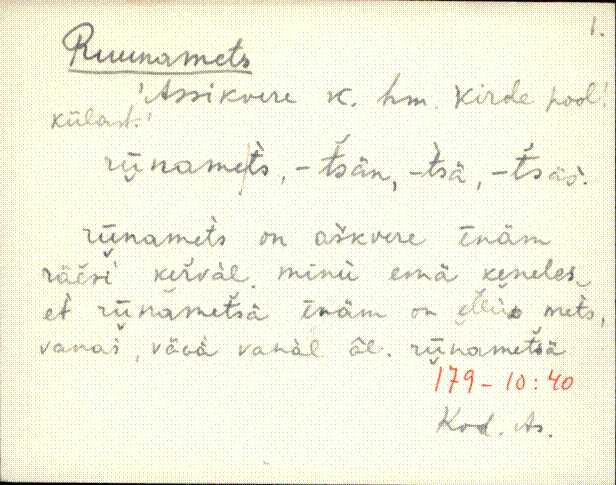 1.
Ruunamets
'Assikvere k. hm. kirde pool
külast.'
rūnamet̀s, -t̆sän, -t̀sä, -t̆säs.
rūnamet̀s on aškvere īnäm
räĕsi keŕväl. minu emä keneles,
et̀ rūnamet̆sä īnäm on mets,
vanaš, väǵä vanàl âl. rūnamet̆sä
179 - 10:40
Kod. As.